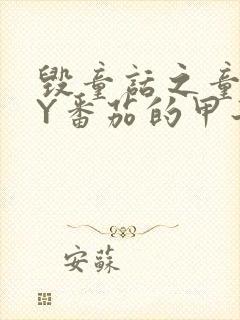 毁童话之童
Y番茄的甲
安蘇